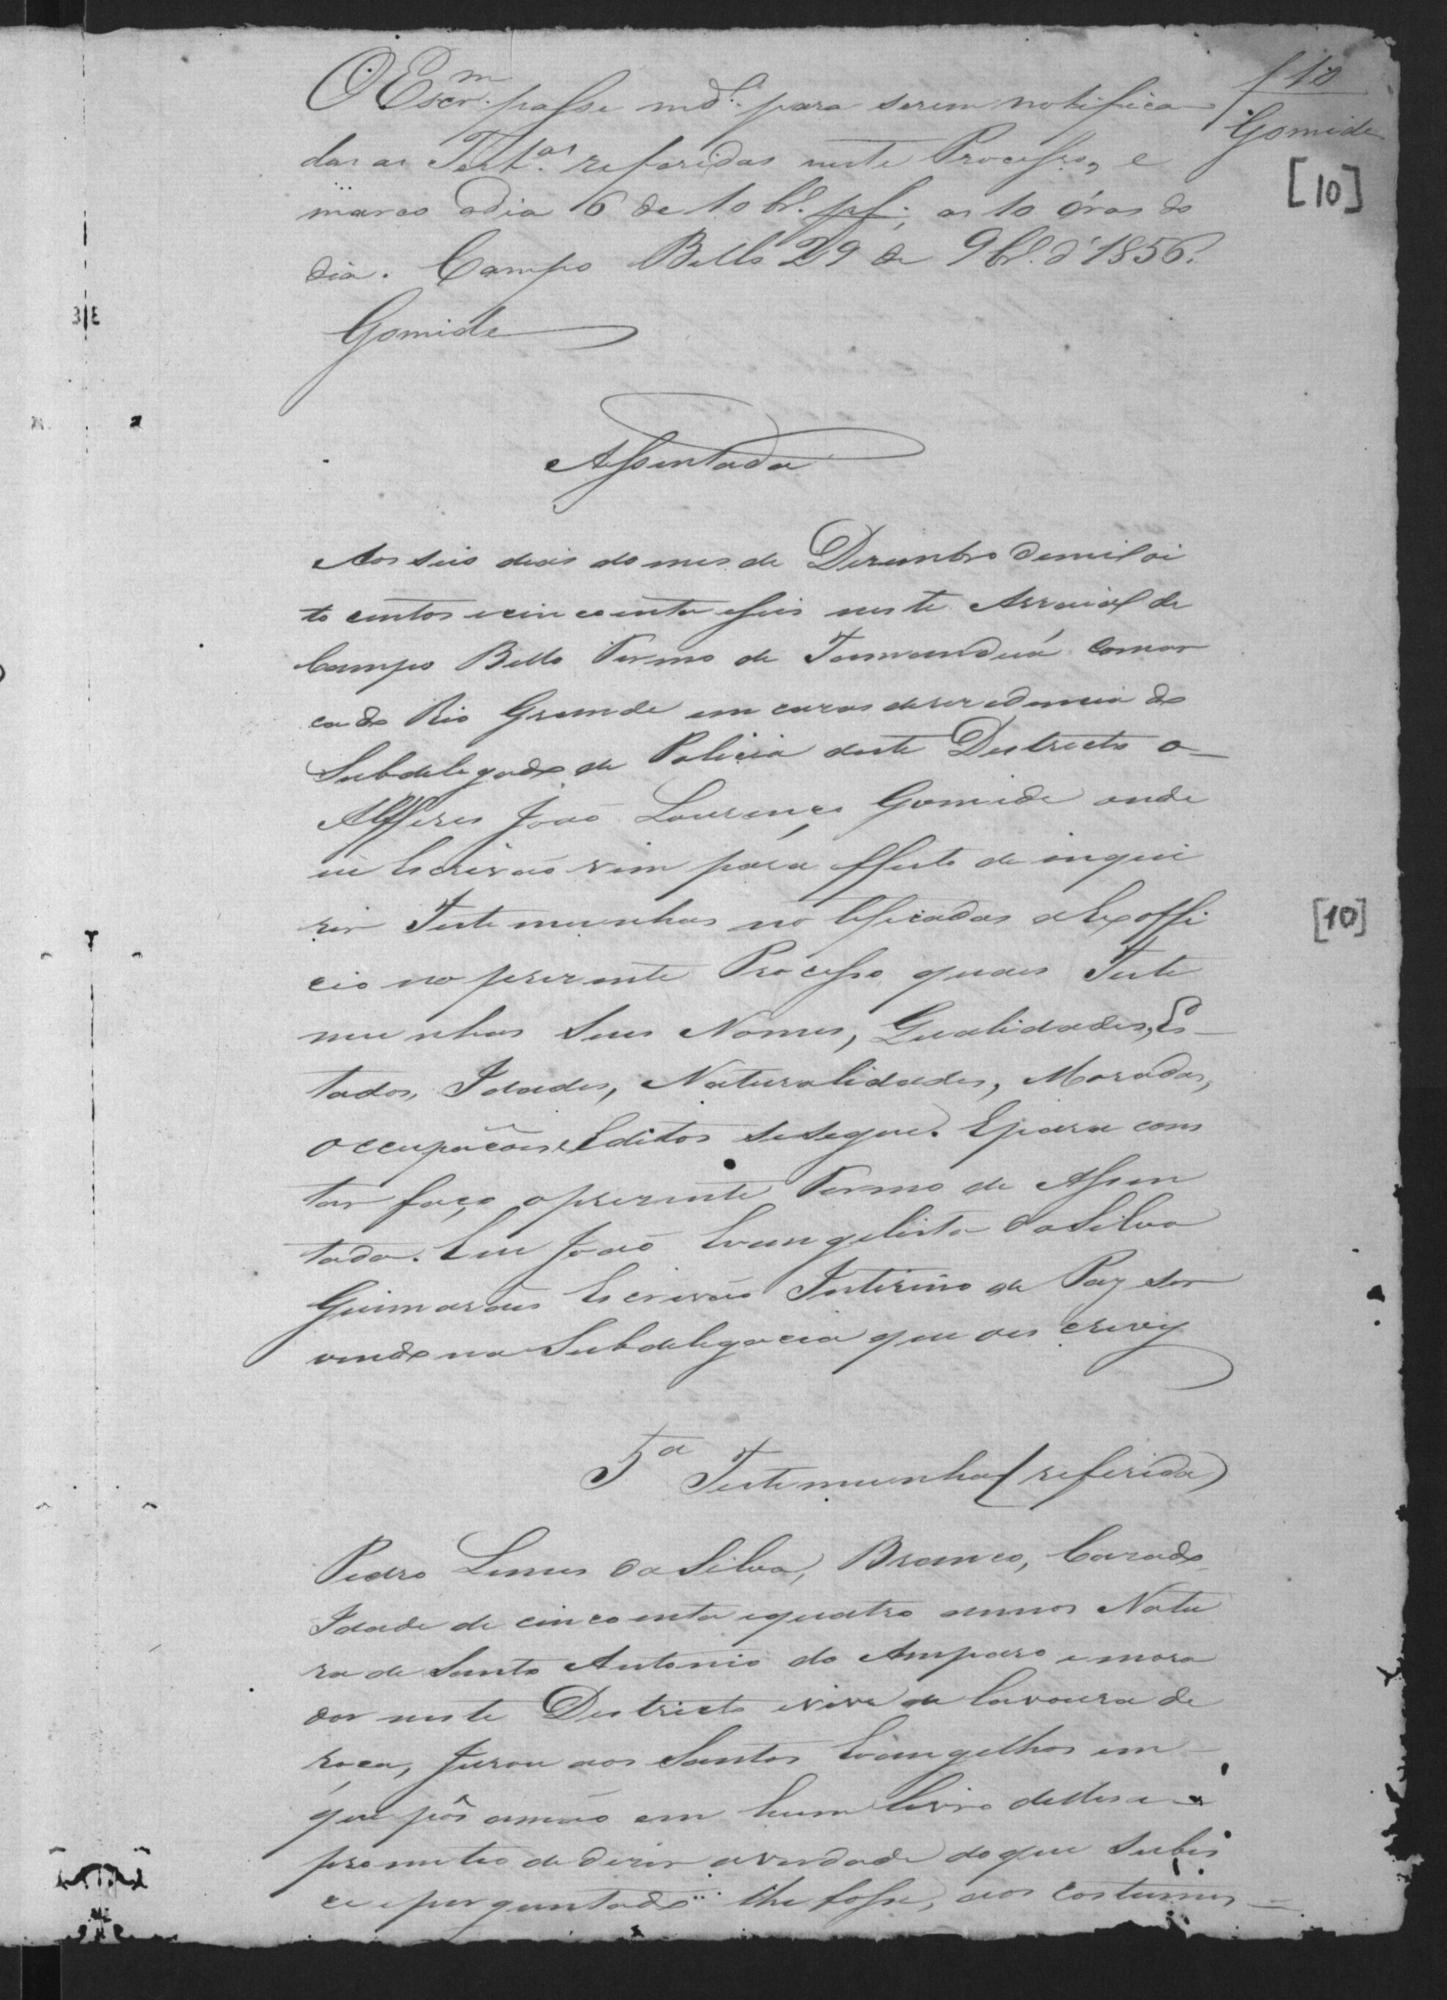 f 10
Gomide
[10]
O Escrm. passe mdo. para serem notifica
das as Testas. referidas neste Processo, e
marco o dia 6 de 10br. pf. as 10 óras do
dia. Campo Bello 29 de 9br. d' 1856.
Gomide
Assentada
Aos seis dias do mes de Dezembro de mil oi
to centos e cincoenta e seis neste Arraial de
Campo Bello Termo de Tamanduá Comar
ca do Rio Grande em casas de rezedencia do
Subdelegado de Policia deste Destricto o
Alfferes João Lourenço Gomide onde
eu Escrivão vim para effeito de inqui
rir Testemunhas notificadas a Exoffi
[10]
cio no prezente Processo quaes Teste
munhas Seus Nomes, Qualidades, Es
tados, Idades, Naturalidades, Moradas,
Occupaçõens e Editos se segue. E para cons
tar faço o prezente Termo de Assen
tada. Eu João Evangelista da Silva
Guimarães Escrivão Interino de Paz ser
vindo na Subdelegacia que o es crevy
5a Testemunha (referida)
Pedro Lemes da Silva, Branco, Cazado
Idade de cincoenta e quatro annos Natu
ra de Santo Antonio do Amparo e mora
dor neste Destricto e vive de lavoura de
roça, Jurou aos Santos Evangelhos em
que pôs a mão em hum livro delles e
prometeo de dizer a verdade do que Subes
ce e perguntado lhe fosse, aos costumes